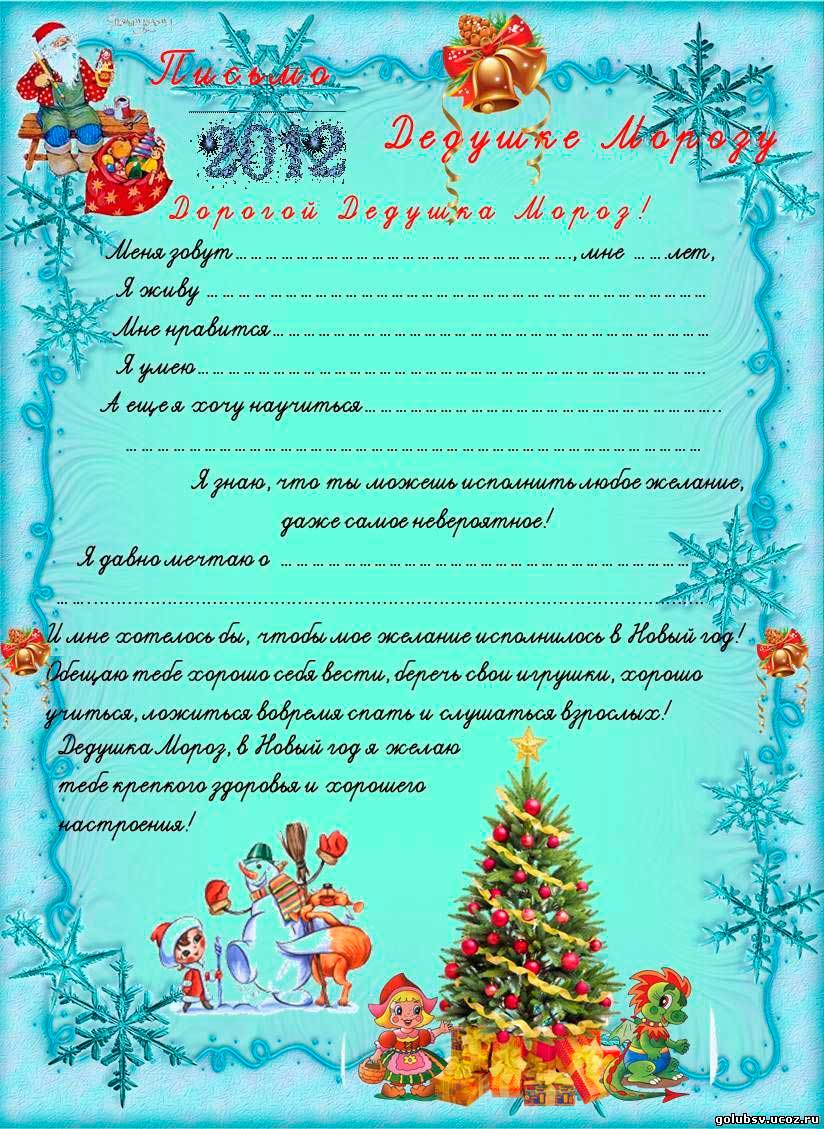 Письмо
2012
Дедушке Морозу
Дорогой Дедушка Мороз!
Меня зовут……………………………………………………………., мне …….лет,
Я живу ……………………………………………………………………………………
Мне нравится…………………………………………………………………………
Я умею……………………………………………………………………………………..
А еще я хочу научиться…………………………………………………………..
…………………………………………………………………………………………………
Я знаю, что ты можешь исполнить любое желание,
даже самое невероятное!
Я давно мечтаю о ……………………………………………………………………
……..............................................................................................................
И мне хотелось бы, чтобы мое желание исполнилось в Новый год!
Обещаю тебе хорошо себя вести, беречь свои игрушки, хорошо
учиться, ложиться вовремя спать и слушаться взрослых!
Дедушка Мороз, в Новый год я желаю
тебе крепкого здоровья и хорошего
настроения!
golubsv.ucoz.ru